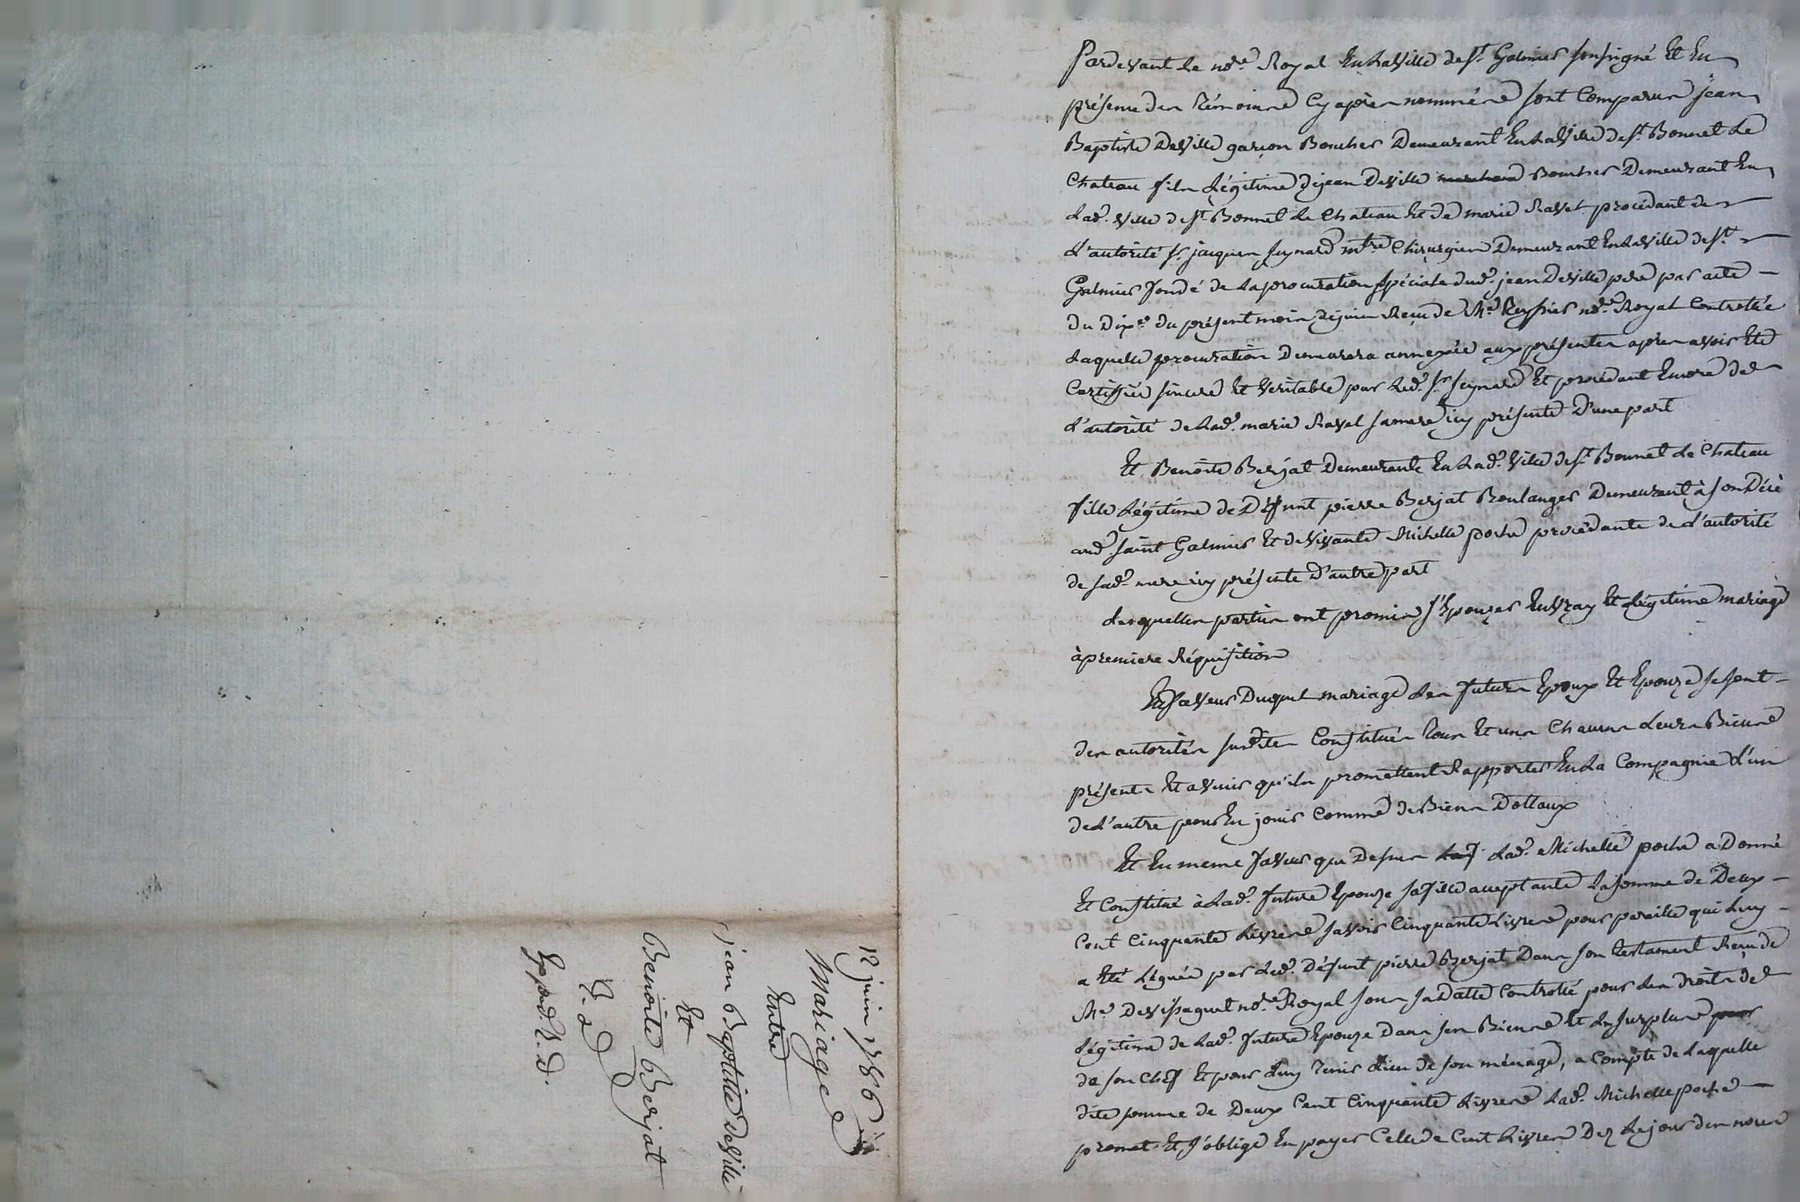 Pardevant le not.re Royal En la Ville de St. Galmier soussigné Et En
présence des témoins Cy après nommés sont Comparus jean
Baptiste DeVille garçon Boucher Demeurant En la Ville de St. Bonnet Le
Chateau fils Légitime de jean DeVille marchand Boucher Demeurant En
lad. Ville de St. Bonnet Le Chateau Et de marie Ravel procédant de
L'autorité Sr. jacques Seynard mtre Chirurgien Demeurant En la Ville de St.
Galmier fondé de la procuration spéciale dud. jean DeVille pere par acte
du Dixe. du présent mois de juin Reçu de Me. not.re Royal Controllée
Laquelle procuration Demeurera annexée aux présentes après avoir Eté
Certiffiée sincere Et Veritable par Led. Sr. Seynard Et procédant Encore de
L'autorité de Lad. marie Ravel sa mere icy présente D'une part
Et Benoite Berjat Demeurante En Lad. Ville de St. Bonnet Le Chateau
fille Légitime de Deffunt pierre Berjat Boulanger Demeurant à son Décè
aud. Saint Galmier Et de Vivante Michelle poche procédante de L'autorité
de sad. mere icy présente D'autre part
Lesquelles parties ont promis s'Epouzer En Vray Et Légitime mariage
à premiere Réquisition
En faveur Duquel mariage Les futurs Epoux Et Epouze se sont
des autorités susdites Constitués tous Et uns Chacuns Leurs Biens
présents Et a Venir qu'ils promettent Rapporter En La Compagnie L'un
de L'autre pour En jouir Comme de Biens Dottaux
Et En meme faveur que Dessus Lad. Michelle poche a Donné
Et Constitué à Lad. future Epouze sa fille acceptante La somme de Deux
Cent Cinquante Livres savoir Cinquante Livres pour pareille qui Luy
a Eté Léguée par Led. Défunt pierre Berjat Dans son testament Reçu de
Me. not.re Royal sous sa Datte Controllé pour Les Droits de
Légitime de Lad. future Epouze Dans ses Biens Et Le surplus pour
de son Chef Et pour Luy tenir Lieu de son ménage, a Compte de Laquelle
dite somme de Deux Cent Cinquante Livres Lad. Michelle poche
promet Et s'oblige En payer Celle de Cent Livres Dez Le jour des noces
12 juin 1786
Mariage
Entre
jean Baptiste DeVille
Et
Benoite Berjat